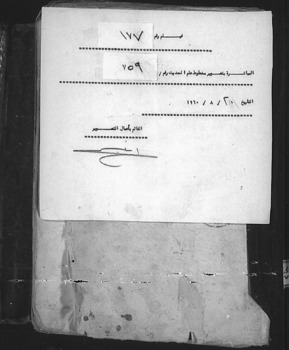 فيلم رقم ١٧٧
المباشرة بتصوير مخطوط علم الحديث رقم / ٧٥٩
التاريخ ٢٠ / ٨ / ١٩٦٠
القائم بأعمال التصوير